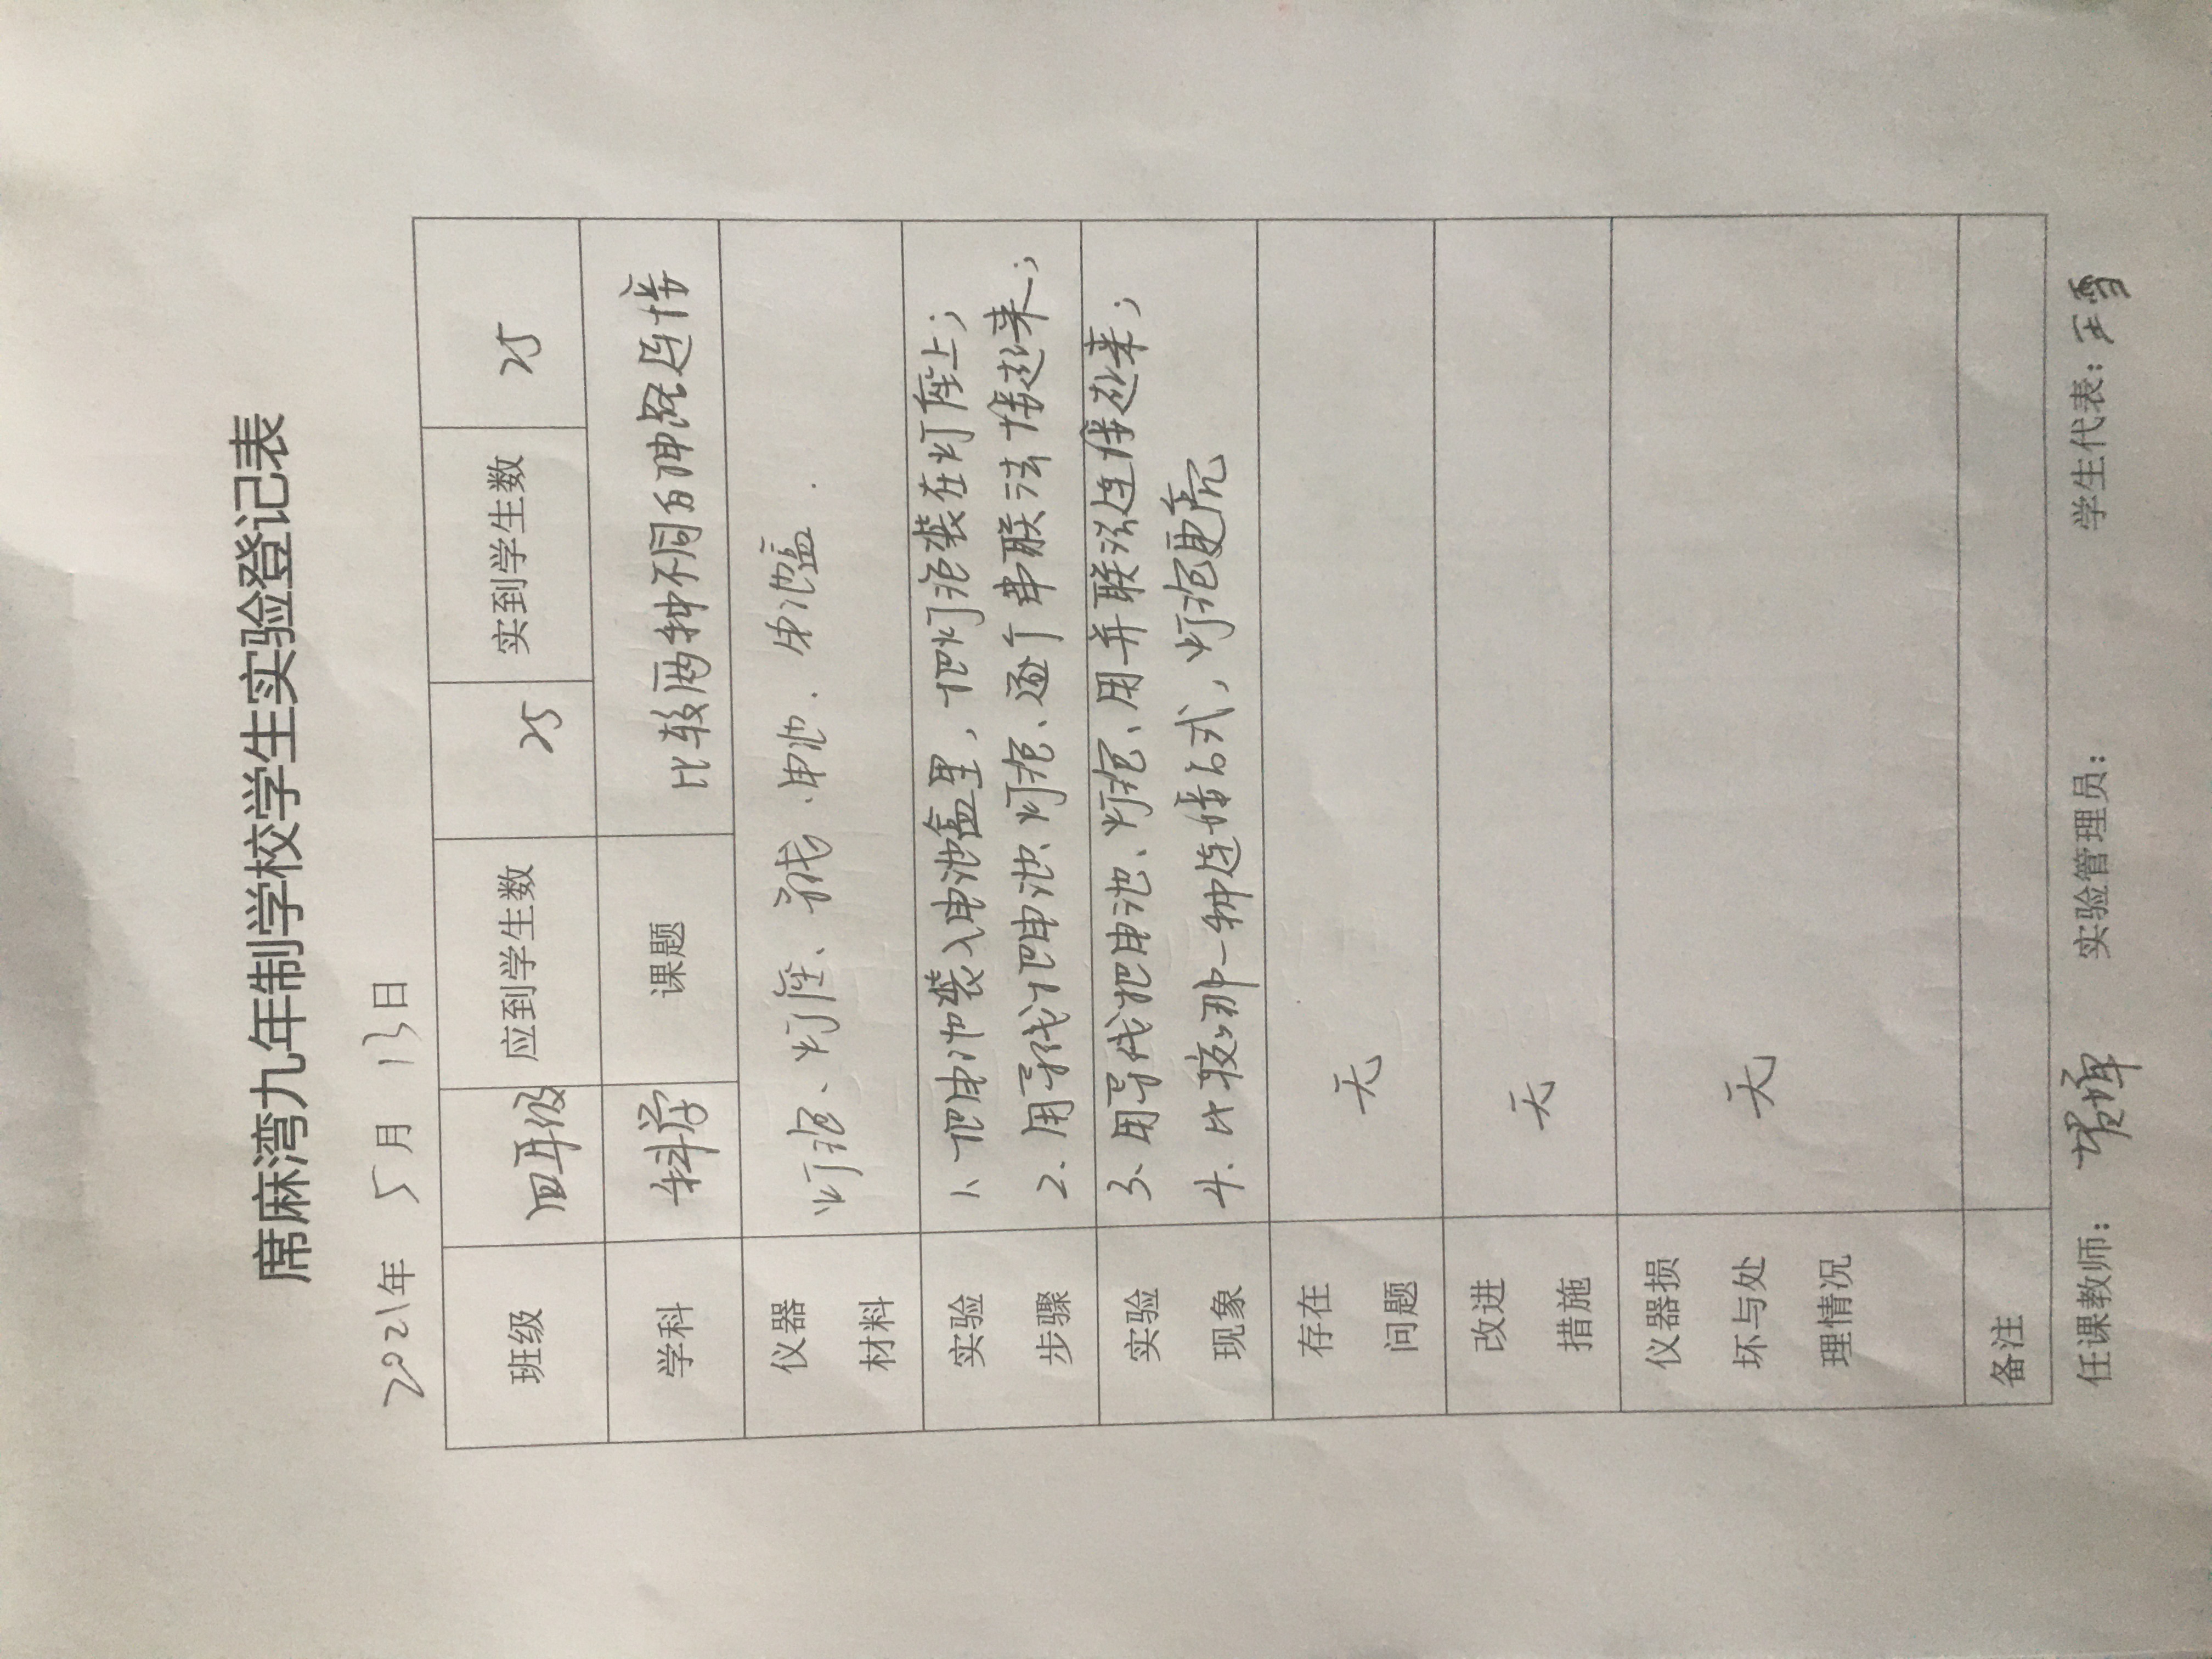 席麻湾九年制学校学生实验登记表
2021年 5月 13日
班级 四年级 应到学生数 25 实到学生数 25
学科 科学 课题 比较两种不同的电路连接
仪器 材料 灯泡、灯座、导线、电池、电池盒.
实验 步骤 1、把电池装入电池盒里,把灯泡装在灯座上;
2、用导线把电池、灯泡、逐个串联法接起来;
实验 现象 3、用导线把电池、灯泡、用并联法连接起来;
4、比较哪一种连接方式,灯泡更亮
存在 问题 无
改进 措施 无
仪器损 坏与处 理情况 无
备注
任课教师: 实验管理员: 学生代表:王雪